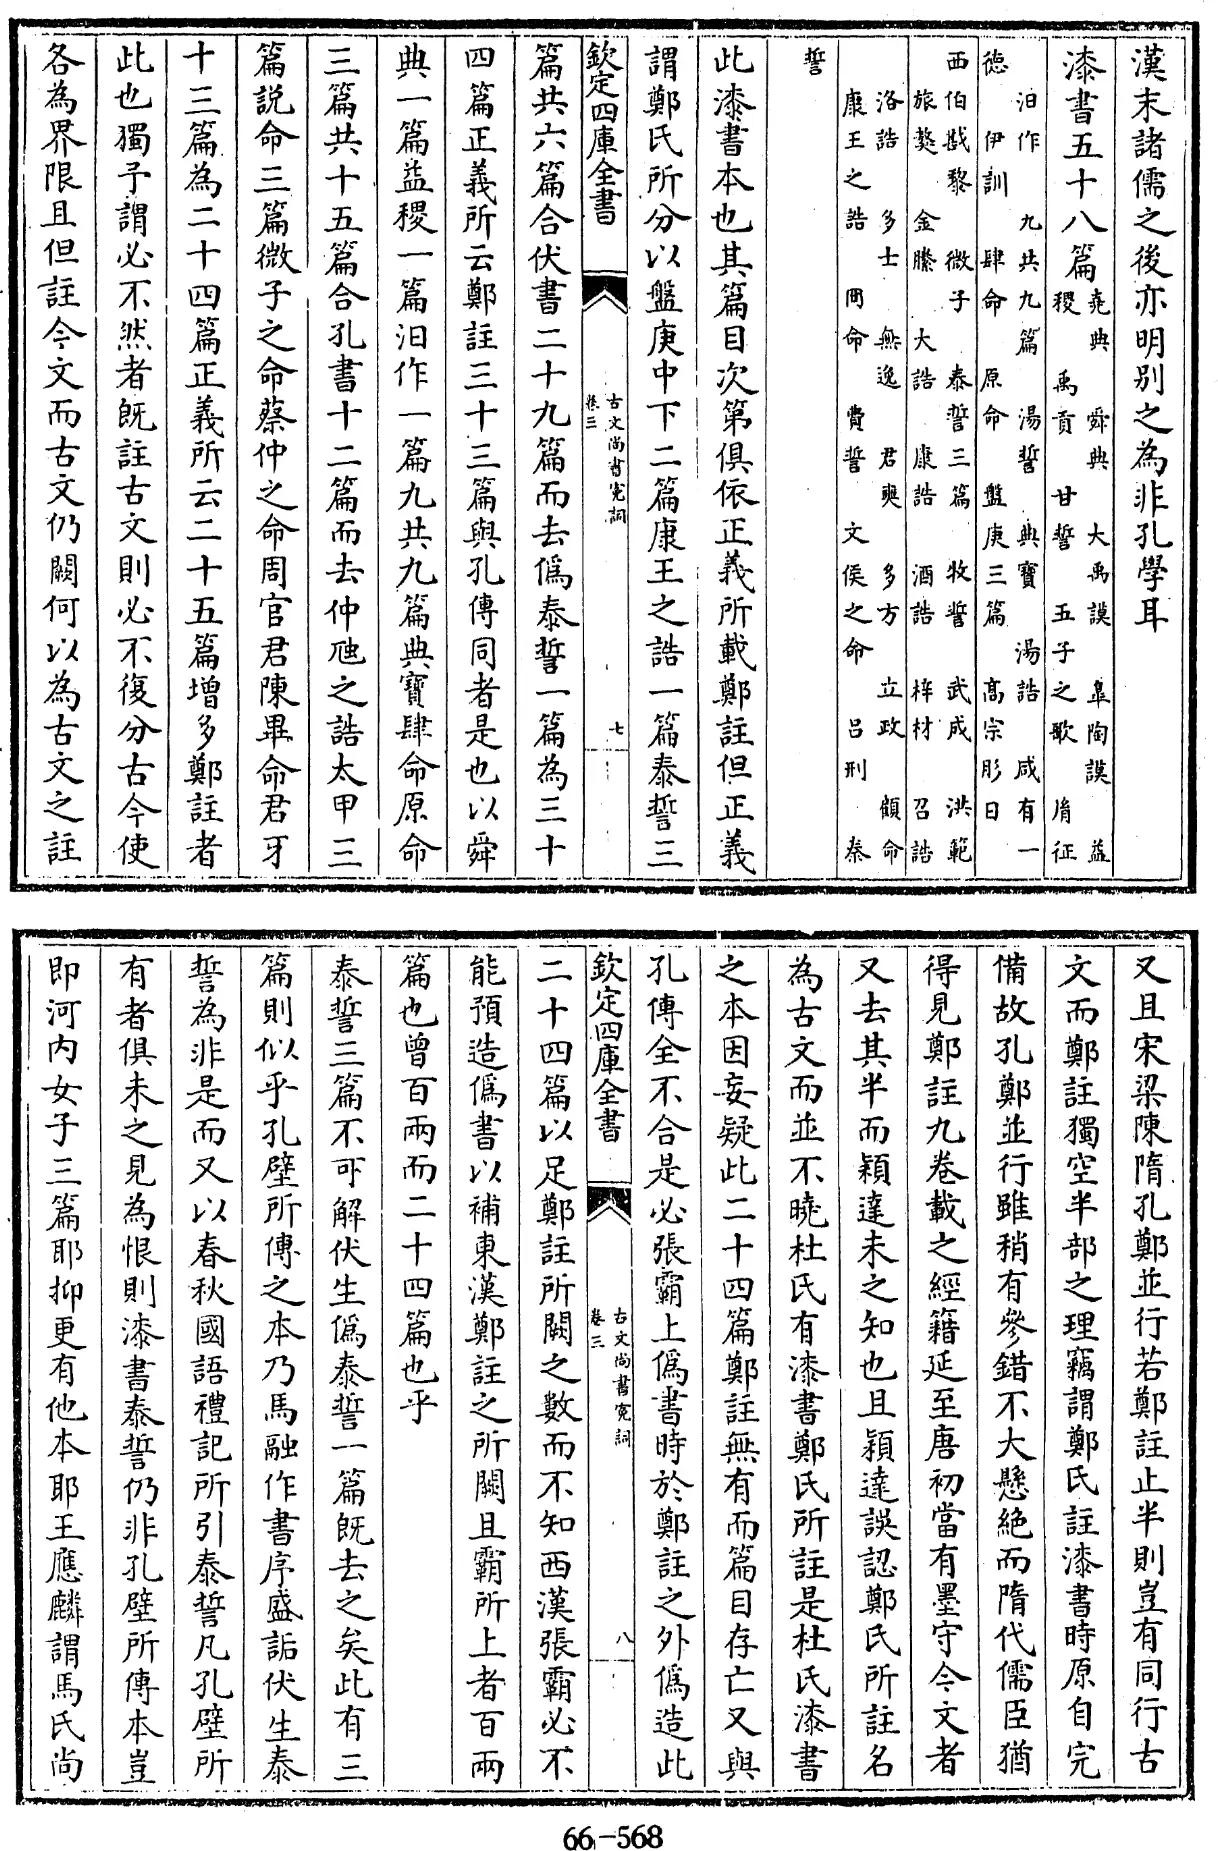 漢末諸儒之後亦明別之為非孔學耳
漆書五十八篇
堯典　舜典　大禹謨　臯陶謨　益
稷　禹貢　甘誓　五子之歌　胤征
汩作　九共九篇　湯誓　典寶　湯誥　咸有一
德　伊訓　肆命　原命　盤庚三篇　高宗肜日
西伯戡黎　微子　泰誓三篇　牧誓　武成　洪範
旅獒　金縢　大誥　康誥　酒誥　梓材　召誥
洛誥　多士　無逸　君奭　多方　立政　顧命
康王之誥　冏命　費誓　文侯之命　呂刑　秦
誓
此漆書本也其篇目次第俱依正義所載鄭註但正義
謂鄭氏所分以盤庚中下二篇康王之誥一篇泰誓三
欽定四庫全書
古文尚書寃詞
卷三
七
篇共六篇合伏書二十九篇而去偽泰誓一篇為三十
四篇正義所云鄭註三十三篇與孔傳同者是也以舜
典一篇益稷一篇汩作一篇九共九篇典寶肆命原命
三篇共十五篇合孔書十二篇而去仲虺之誥太甲三
篇說命三篇微子之命蔡仲之命周官君陳畢命君牙
十三篇為二十四篇正義所云二十五篇增多鄭註者
此也獨予謂必不然者既註古文則必不復分古今使
各為界限且但註今文而古文仍闕何以為古文之註
又且宋梁陳隋孔鄭並行若鄭註止半則豈有同行古
文而鄭註獨空半部之理竊謂鄭氏註漆書時原自完
備故孔鄭並行雖稍有參錯不大懸絶而隋代儒臣猶
得見鄭註九卷載之經籍延至唐初當有墨守今文者
又去其半而穎達未之知也且穎達誤認鄭氏所註名
為古文而並不曉杜氏有漆書鄭氏所註是杜氏漆書
之本因妄疑此二十四篇鄭註無有而篇目存亡又與
孔傳全不合是必張霸上偽書時於鄭註之外偽造此
欽定四庫全書
古文尚書寃詞
卷三
八
二十四篇以足鄭註所闕之數而不知西漢張霸必不
能預造偽書以補東漢鄭註之所闕且霸所上者百兩
篇也曾百兩而二十四篇也乎
泰誓三篇不可解伏生偽泰誓一篇既去之矣此有三
篇則似乎孔壁所傳之本乃馬融作書序盛詬伏生泰
誓為非是而又以春秋國語禮記所引泰誓凡孔壁所
有者俱未之見為恨則漆書泰誓仍非孔壁所傳本豈
即河内女子三篇耶抑更有他本耶王應麟謂馬氏尚
66-568